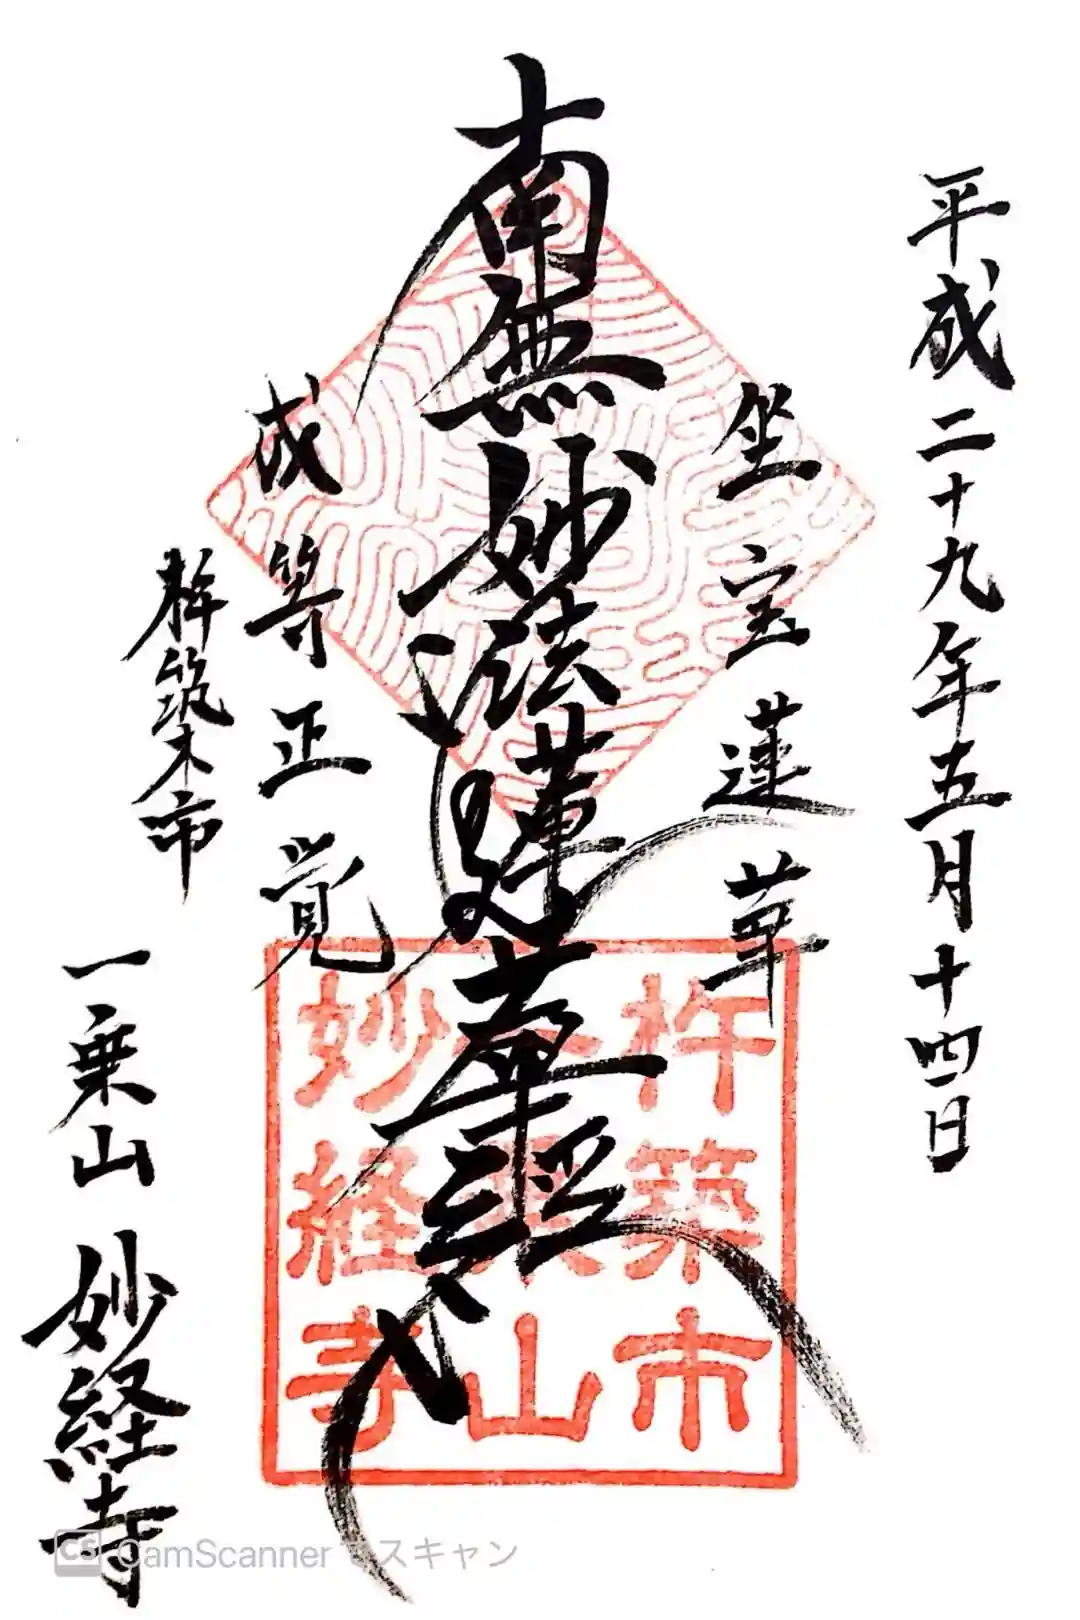 平成二十九年五月十四日
坐宝蓮華
南無妙法蓮華経
成等正覚
杵築市
一乗山 妙経寺
杵築市
一乗山
妙経寺
CS CamScanner でスキャン